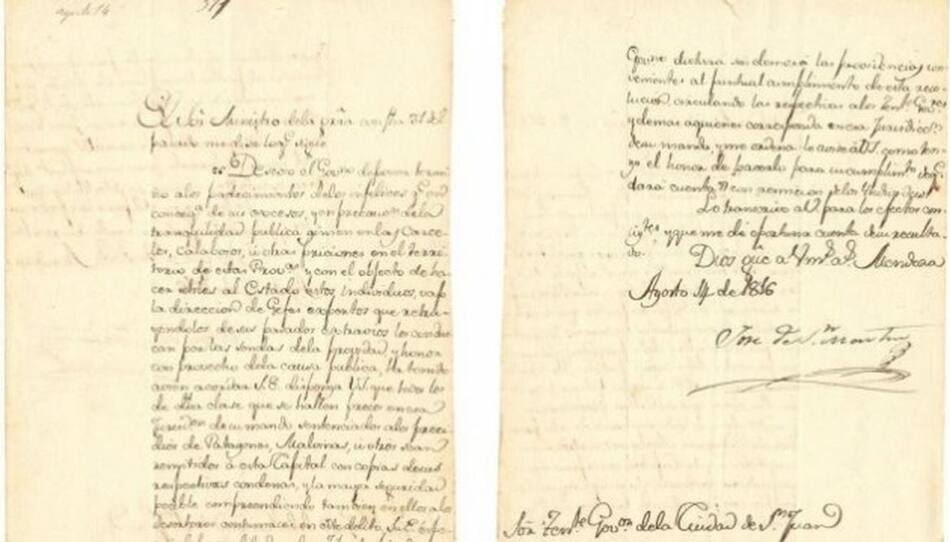 agosto 14
El Sor Ministro dela Grra con fha 31 del
pasado me dice loqe sigue
Deseoso el Govno de poner termi
no alos padecimientos delos infelices, qe en
conseqa de sus excesos, y en precaucn dela
tranquilidad publica gimen enlas Carce
les, Calabozos, ú otras priciones en el terri
torio de estas Provs y con el objeto de ha
cer utiles al Estado estos individuos, vajo
la direccion de Gefes expertos que retra
yendolos de sus pasados extravios los condus
can por las sendas dela providad, y honor
con provecho dela causa publica, ha tenido
acordar S.E. disponga VS. que todos los
de dha clase que se hallen precos en esa
Jurisdon de su mando sentenciados alos presi
dios de Patagones, Malvinas, ú otros sean
remitidos á esta Capital con copias desus
respectivas condenas, y la mayor seguridad
posible comprendiendo tambien en ellos alos
desertores contumaces en este delito. S.E.
Govno
dictara sin demora las providencias con
venientes al puntual cumplimiento de esta reso
lucion, circulando las respectivas alos Tente Govres
y demas aquienes corresponda en esa Jurisdicn
de su mando, y me ordena lo avise áVS. como ten
go el honor de para su cumplimto
dará cuenta con remision delos
Lo transcrivo á V para los efectos con
sigtes, y que me de oportuna cuenta de su resulta
do.
Dios gue á Vm. as. Mendoza
Agosto 14 de 1816
Jose de Sn Martin
Sor Tente Govor dela Ciudad de Sn Juan